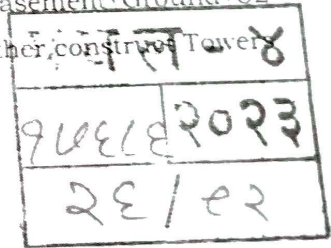 asement Ground 02
her, construct Towers
ल - ४
१५६८६ २०२३
२६/९२